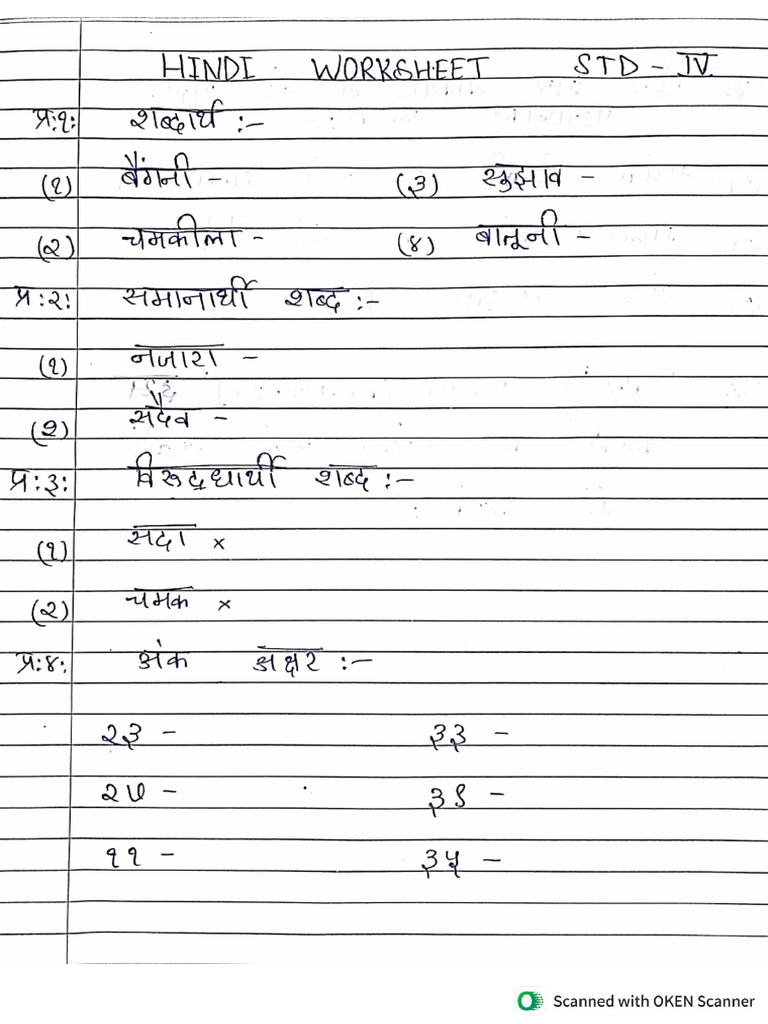 HINDI WORKSHEET STD - IV
प्र:१: शब्दार्थ :-
(१) बैंगनी - (३) सुझाव -
(२) चमकीला - (४) बातूनी -
प्र:२: समानार्थी शब्द :-
(१) नजारा -
(२) सदैव -
प्र:३: विरूद्धार्थी शब्द :-
(१) सदा ×
(२) चमक ×
प्र:४: अंक अक्षर :-
२३ - ३३ -
११ - ३५ -
Scanned with OKEN Scanner